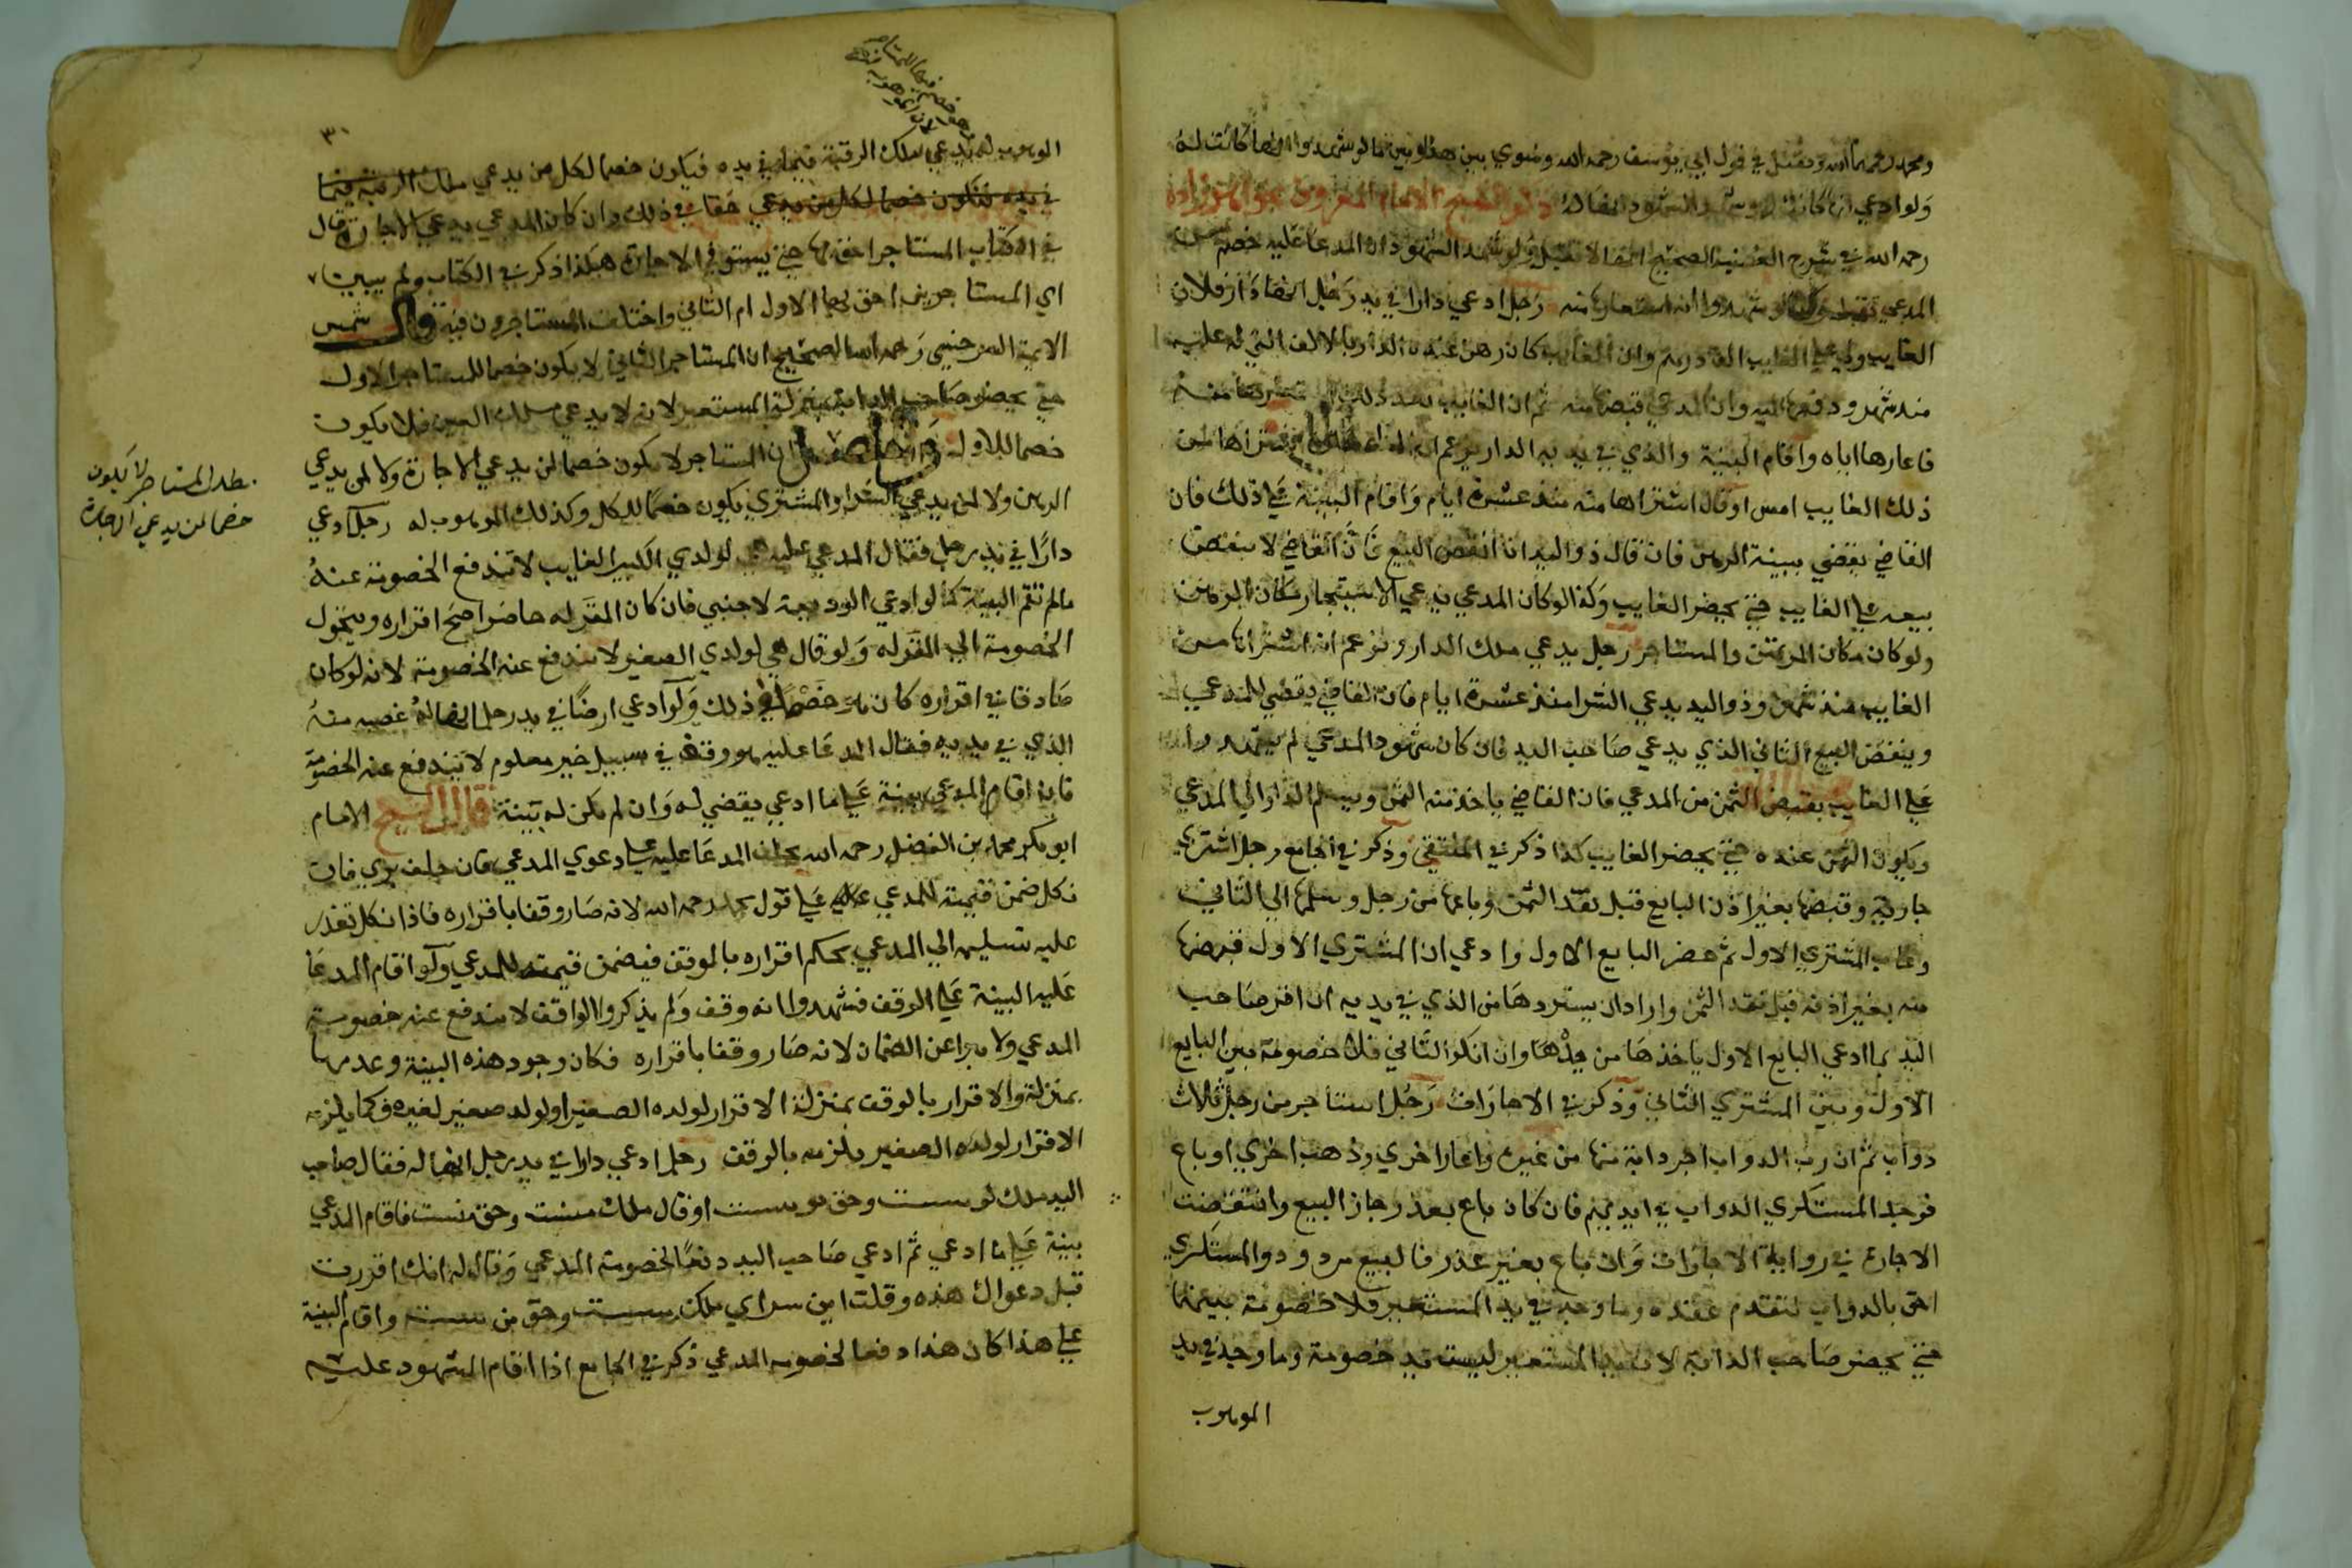 ومحمد رحمهما الله وتقبل في قول ابي يوسف رحمه الله وسوي بين هذا وبين ما لو شهدوا انها كانت له
ولو ادعي انها كانت له وشهد الشهود انها له ذكر الشيخ الامام المعروف بخواهرزاده
رحمه الله في شرح الصحيح انها لا تقبل ولو شهد الشهود ان المدعا عليه خصم
المدعي تقبل استعارها منه رجل ادعي دارا في يد رجل انها دار فلان
الغايب ولي علي الغايب الف درهم وان الغايب كان رهن عنده الدار بالالف التي له عليه
منذ شهر ودفعها اليه وان المدعي قبضها منه ثم ان الغايب بعد ذلك استعارها منه
فاعارها اياه واقام البينة والذي في يديه الدار يزعم انه اشتراها من
ذلك الغايب امس او قال اشتراها منه منذ عشرة ايام واقام البينة علي ذلك فان
القاضي يقضي ببينة الرهن فان قال ذو اليد انا انقض البيع فان القاضي لا ينقض
بيعه علي الغايب حتي يحضر الغايب وكذا لو كان المدعي يدعي الاستيجار مكان الرهن
ولو كان مكان المرتهن والمستاجر رجل يدعي ملك الدار ويزعم انه اشتراها من
الغايب منذ شهر وذو اليد يدعي الشرا منذ عشرة ايام فان القاضي يقضي للمدعي
وينقض البيع الثاني الذي يدعي صاحب اليد فان كان شهود المدعي لم يشهدوا
علي الغايب بقبض الثمن من المدعي فان القاضي ياخذ منه الثمن ويسلم الدار الي المدعي
ويكون الثمن عنده حتي يحضر الغايب كذا ذكر في المنتقي وذكر في الجامع رجل اشتري
جارية وقبضها بغير اذن البايع قبل نقد الثمن وباعها من رجل وسلمها الي الثاني
وغاب المشتري الاول ثم حضر البايع الاول وادعي ان المشتري الاول قبضها
منه بغير اذنه قبل نقد الثمن واراد ان يستردها من الذي في يديه ان اقر صاحب
اليد بما ادعي البايع الاول ياخذها من يده وان انكر الثاني فلا خصومة بين البايع
الاول وبين المشتري الثاني وذكر في الاجارات رجل استاجر من رجل ثلاث
دواب ثم ان رب الدواب اجر دابة منها من غيره واعار اخري وذهب اخري او باع
فوجد المستكري الدواب في ايديهم فان كان باع بعذر جاز البيع وانتقضت
الاجارة في رواية الاجارات وان باع بغير عذر فالبيع مردود والمستكري
احق بالدواب لتقدم عقده وما وجد في يد المستعير فلا خصومة بينهما
حتي يحضر صاحب الدابة لان يد المستعير ليست يد خصومة وما وجد في يد
الموهوب
٣٠
الموهوب له يدعي ملك الرقبة فيما في يده فيكون خصما لكل من يدعي ملك الرقبة فيما
في يده فيكون خصما لكل من يدعي حقا في ذلك وان كان المدعي يدعي الاجارة قال
في الكتاب المستاجر احق بها حتي يستوفي الاجارة هكذا ذكر في الكتاب ولم يبين
اي المستاجرين احق بها الاول ام الثاني واختلف المستاجرون فيه قال شمس
الايمة السرخسي رحمه الله الصحيح ان المستاجر الثاني لا يكون خصما للمستاجر الاول
حتي يحضر صاحب الدابة بمنزلة المستعير لانه لا يدعي ملك العين فلا يكون
خصما للاول والحاصل ان المستاجر لا يكون خصما لمن يدعي الاجارة ولا لمن يدعي
الرهن ولا لمن يدعي الشرا والمشتري يكون خصما للكل وكذلك الموهوب له رجل ادعي
دارا في يد رجل فقال المدعي عليه هي لولدي الكبير الغايب لا تندفع الخصومة عنه
مالم تقم البينة كما لو ادعي الوديعة لاجنبي فان كان المقر له حاضرا صح اقراره وتتحول
الخصومة الي المقر له ولو قال هي لولدي الصغير لا تندفع عنه الخصومة لانه لو كان
صادقا في اقراره كان هو خصما في ذلك ولو ادعي ارضا في يد رجل انها له غصبه منه
الذي في يديه فقال المدعا عليه هو وقف في سبيل خير معلوم لا تندفع عنه الخصومة
فان اقام المدعي بينة علي ما ادعي يقضي له وان لم يكن له بينة قال الشيخ الامام
ابو بكر محمد بن الفضل رحمه الله يحلف المدعا عليه علي دعوي المدعي فان حلف بري فان
نكل ضمن قيمته للمدعي علي قول محمد رحمه الله لانه صار وقفا باقراره فاذا نكل تعذر
عليه تسليمه الي المدعي بحكم اقراره بالوقف فيضمن قيمته للمدعي ولو اقام المدعا
عليه البينة علي الوقف فشهدوا انه وقف ولم يذكروا الواقف لا يندفع عنه خصومة
المدعي ولا يبرا عن الضمان لانه صار وقفا باقراره فكان وجود هذه البينة وعدمها
بمنزلة والاقرار بالوقف بمنزلة الاقرار لولده الصغير او لولد صغير لغيره فكما يلزمه
الاقرار لولده الصغير يلزمه بالوقف رجل ادعي دارا في يد رجل انها له فقال صاحب
اليد ملك تو نيست وحق تو نيست او قال ملك منست وحق منست فاقام المدعي
بينة علي ما ادعي ثم ادعي صاحب اليد دفعا لخصومة المدعي وقال له انك اقررت
قبل دعواك هذه وقلت اين سراي ملك من نيست وحق من نيست واقام البينة
علي هذا كان هذا دفعا لخصومة المدعي ذكر في الجامع اذا اقام الشهود عليه
مطلب المستاجر لا يكون
خصما لمن يدعي الاجارة